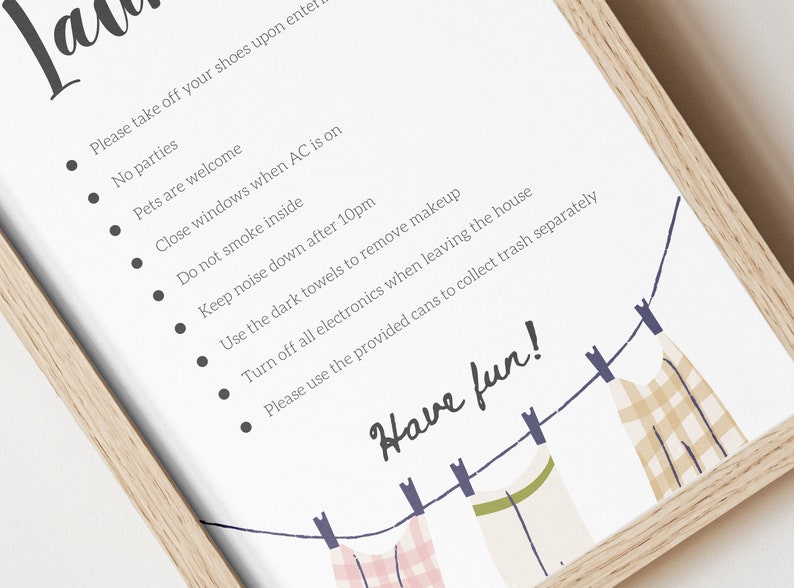 Please take off your shoes upon
No parties
Pets are welcome
Close windows when AC is on
Do not smoke inside
Keep noise down after 10pm
Use the dark towels to remove makeup
Turn off all electronics when leaving the house
Please use the provided cans to collect trash separately
Have fun!